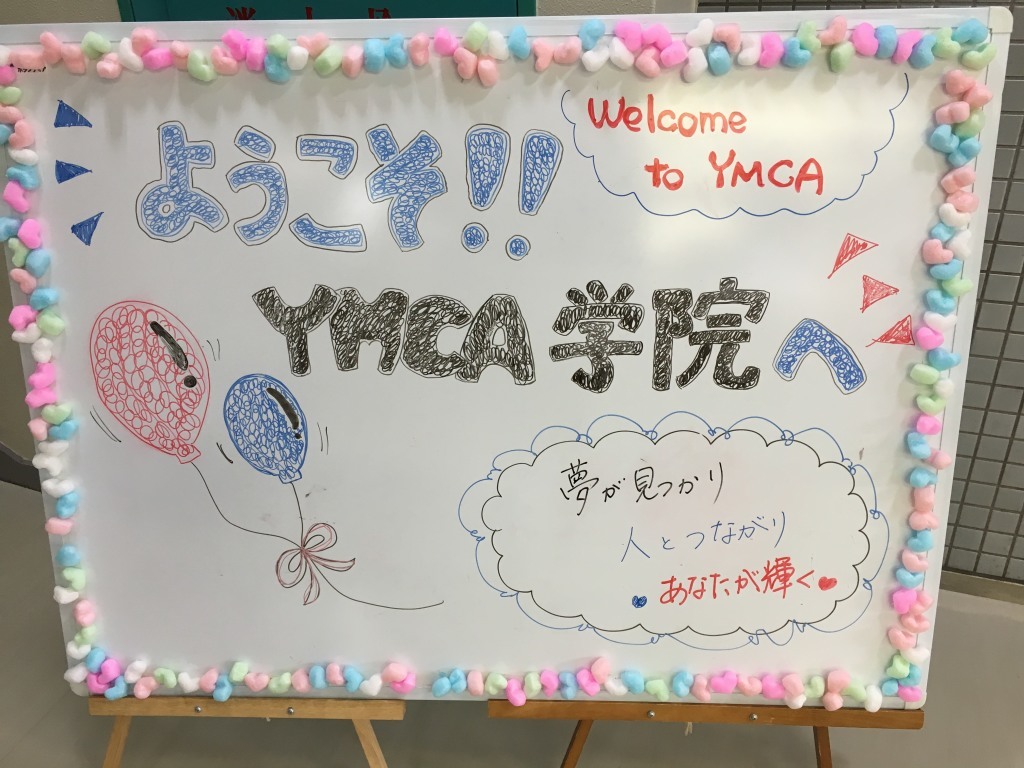 ようこそ!!
Welcome
to YMCA
YMCA学院へ
夢が見つかり
人とつながり
あなたが輝く